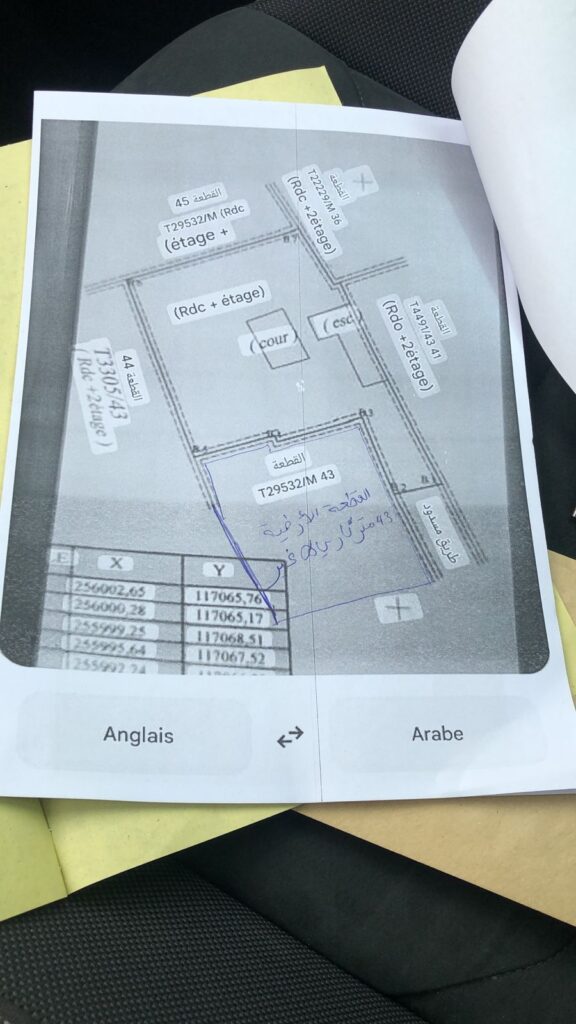 القطعة 45
T29532/M (Rdc
(étage +
القطعة
T22229/M 36
(Rdc +2étage)
B7
(Rdc + étage)
( cour )
( esc )
القطعة
T4491/43 41
(Rdo +2étage)
القطعة 44
T3305/43
( Rdc +2étage )
B3
B4
القطعة
T29532/M 43
القطعة الأرضية
طريق مسدود
X
Y
256002,65
117065,76
256000,28
117065,17
255999,25
117068,51
255995,64
117067,52
255992,24
Anglais
Arabe